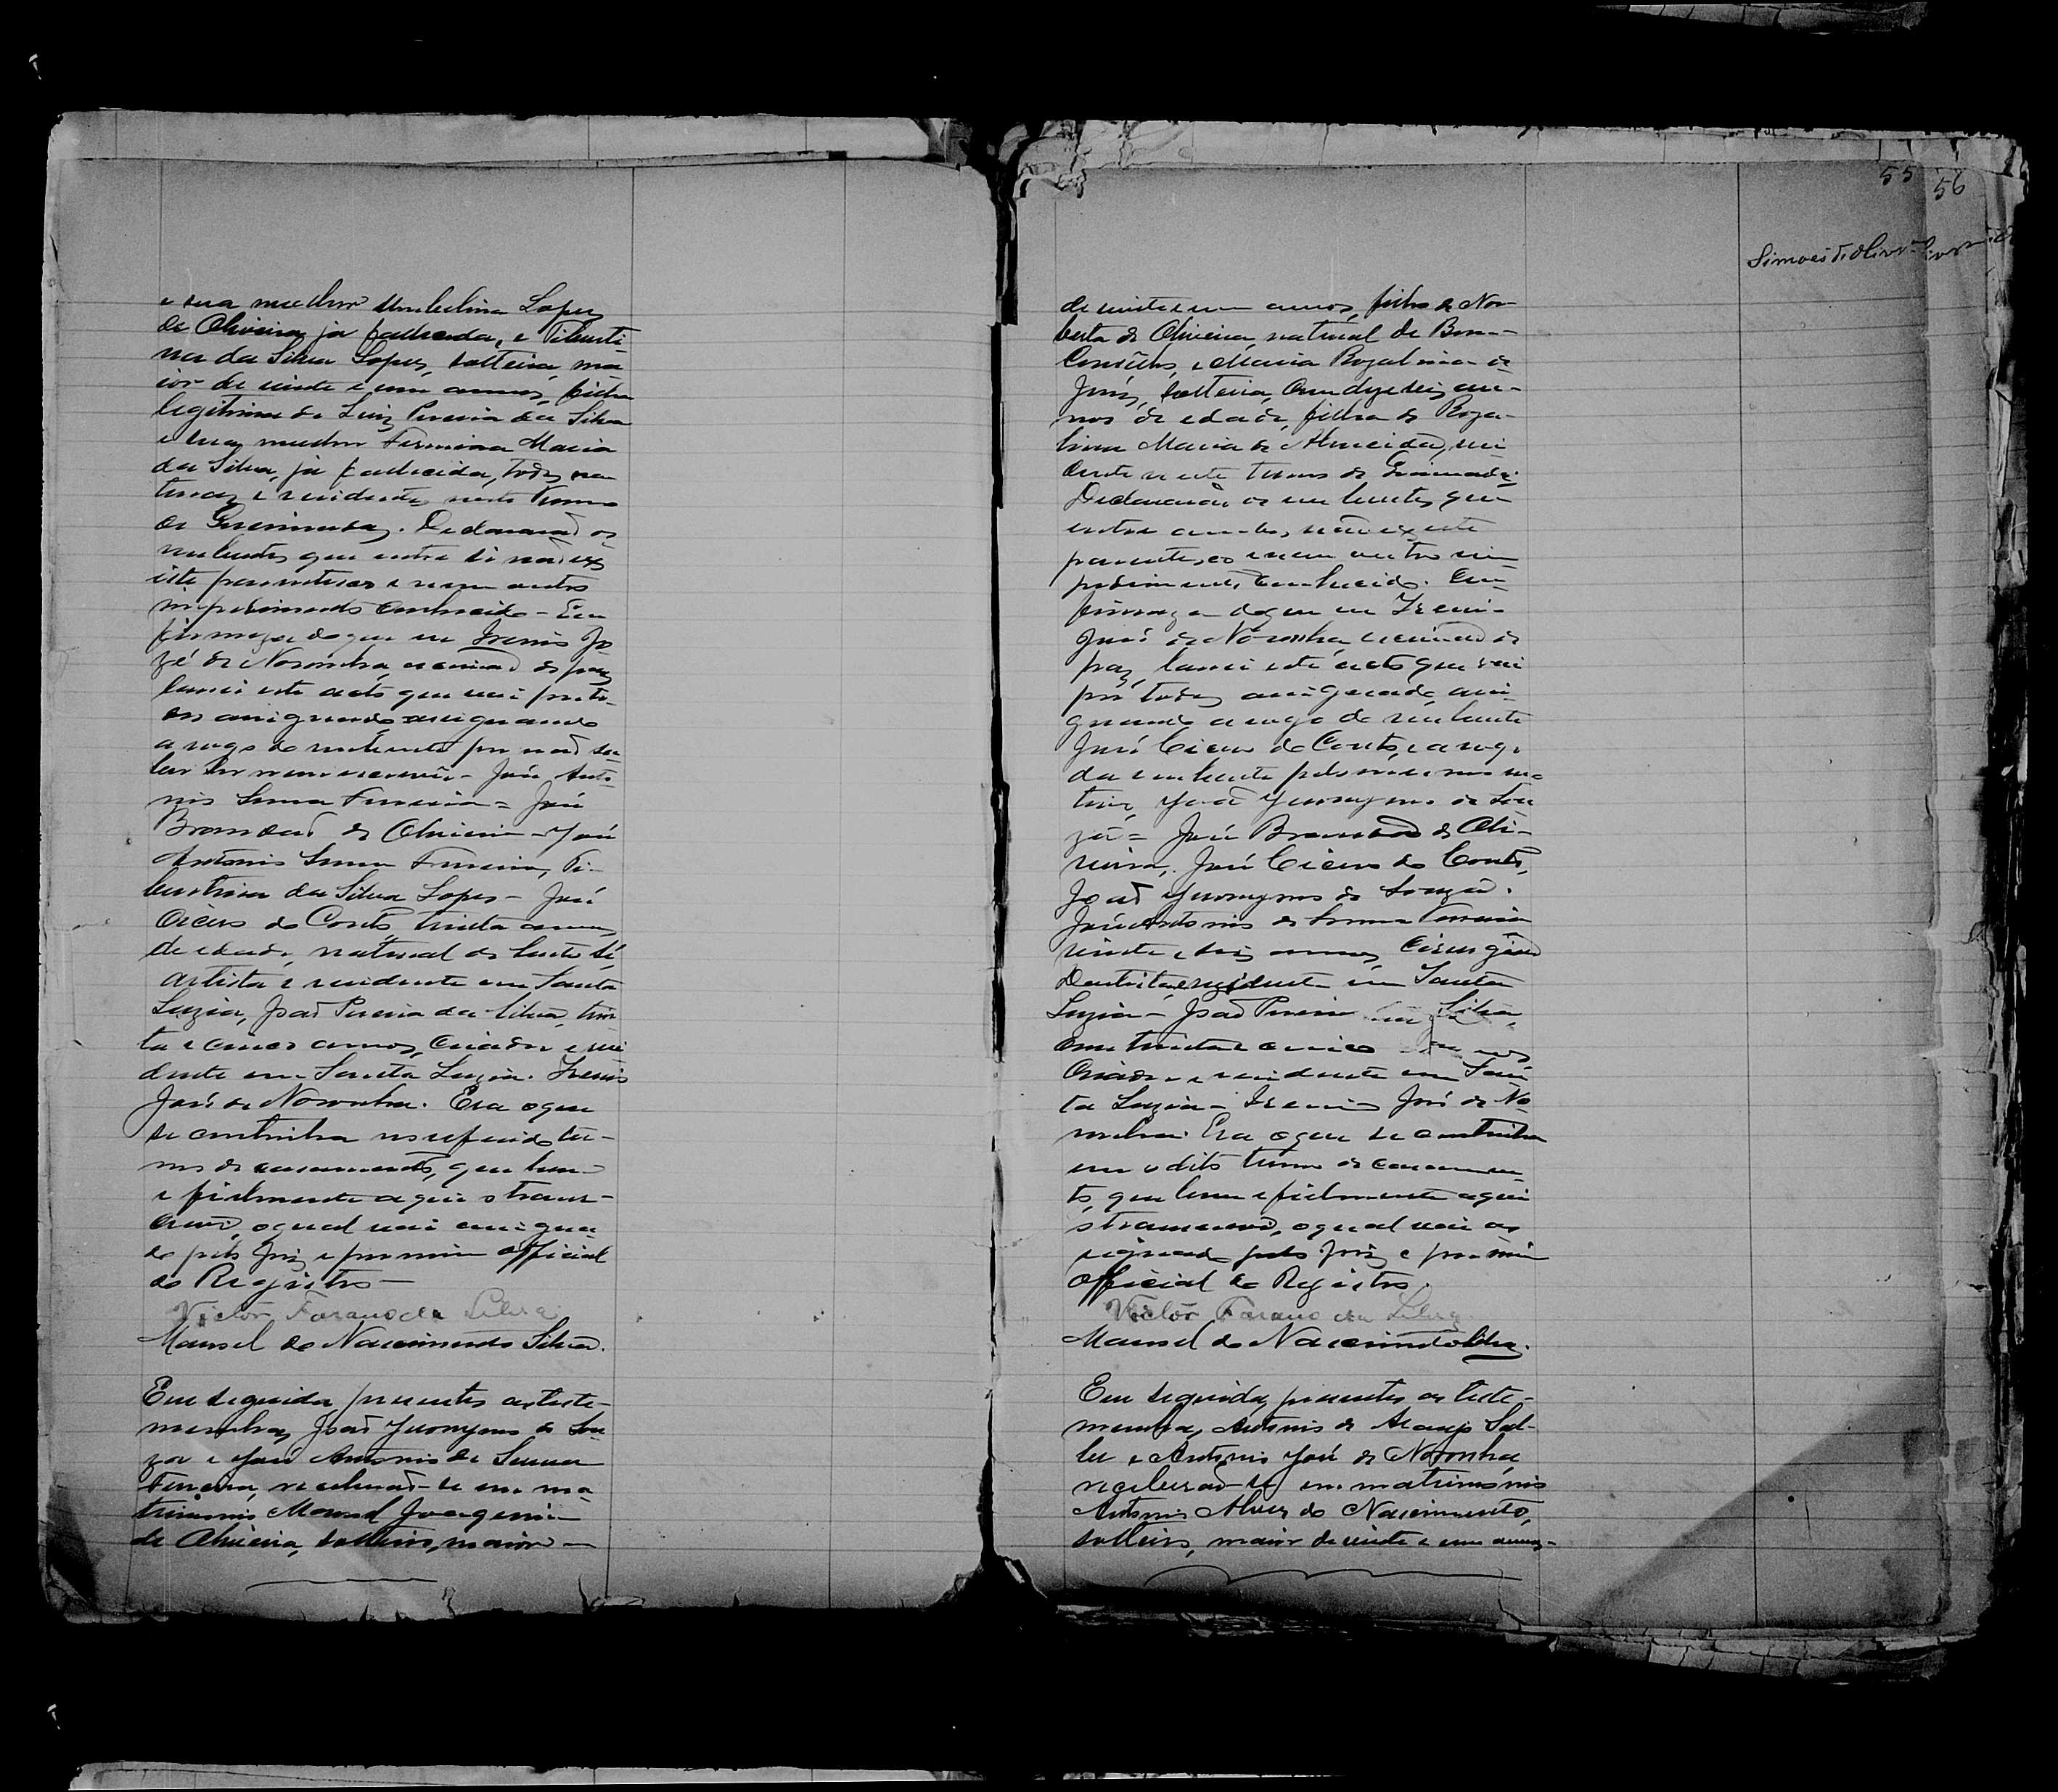 e sua mulher Umbelina Lopes
de Oliveira, já fallecida, e Tiburti-
na da Silva Lopes, solteira, ma-
ior de vinte e um annos, filha
legitima de Luiz Pereira da Silva
e sua mulher Firmina Maria
da Silva, já fallecida, todos na-
turaes e residentes neste termo
de Queimadas. Declararão os
nubentes que entre si não ex
iste parentesco e nem outro
impedimento conhecido - Em
firmeza do que eu Irenio Jo
zé de Noronha, escrivão de paz
lancei este acto que vai por to-
dos assignado assignando
a rogo do nubente por não sa-
ber ler nem escrever - José Anto-
nio Ferreira = José
Brandão de Oliveira - José
Antonio Ferreira, Ti-
burtina da Silva Lopes - José
Cicero do Couto, trinta annos
de edade, natural de Santo Sé,
artista e residente em Santa
Luzia, João Pereira da Silva, trin-
ta e cinco annos, criador e resi
dente em Santa Luzia. Irenio
José de Noronha. Era o que
se continha no referido ter-
mo de casamento, que bem
e fielmente aqui o trans-
crevi, o qual vai assigna-
do pelo Juiz e por mim official
do Registro -
Victor Farano da Silva
Manoel do Nascimento Silva.
Em seguida, presentes as teste-
munhas, João Jeronymo de Sou-
za e José Antonio de
Ferreira, receberão-se em ma-
trimonio Manoel
de Oliveira, solteiro, maior
55 56
Simões de Olivra
de vinte e um annos, filho de Nor-
berta de Oliveira, natural de Bom-
Conselho, e Maria Rozalina de
Jesus, solteira, com dezeseis an-
nos de edade, filha de Roza-
lina Maria de Almeida, resi-
dente neste termo de Queimadas.
Declararão os nubentes que
entre ambos não existe
parentesco e nem outro im-
pedimento conhecido. Em
firmeza do que eu Irenio
José de Noronha, escrivão de
paz, lancei este acto que vai
por todos assignado, assi-
gnando a rogo do nubente
José Cicero do Couto, e a rogo
da nubente pelo mesmo mo-
tivo, João Jeronymo de Sou
za = José Brandão de Oli-
veira, José Cicero do Couto,
João Jeronymo de Souza.
José Antonio de Ferreira
vinte e seis annos, Cirurgião
Dentista, residente em Santa
Luzia - João Pereira da Silva,
com trinta e cinco annos
Criador e residente em San
ta Luzia - Irenio José de No-
ronha. Era o que se continha
em o dito termo de casamen-
to, que bem e fielmente aqui
o transcrevi, o qual vai as
signado pelo Juiz e por mim
Official do Registro.
Victor Farano da Silva
Manoel do Nascimento Silva.
Em seguida, presentes as teste-
munhas, Antonio de Araujo Sal-
les e Antonio José de Noronha
receberão-se em matrimonio
Antonio Alves do Nascimento,
solteiro, maior de vinte e um annos-